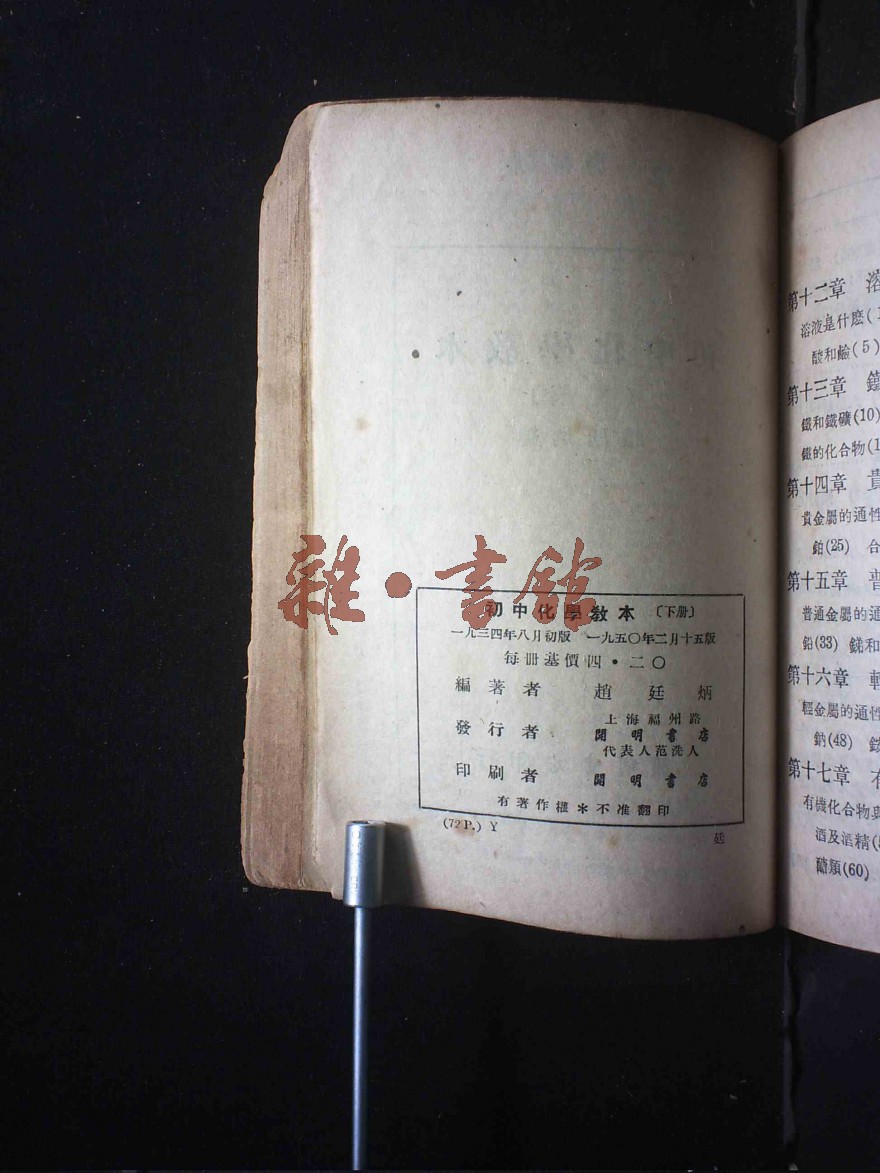 雜·書館
初中化學教本〔下册〕
一九三四年八月初版 一九五〇年二月十五版
每册基價四·二〇
編著者 趙廷炳
上海福州路
發行者 開明書店
代表人范洗人
印刷者 開明書店
有著作權＊不准翻印
(72 P.) Y
廷
第十二章 溶
溶液是什麽(1
酸和鹼(5)
第十三章 鐵
鐵和鐵礦(10)
鐵的化合物(1
第十四章 貴
貴金屬的通性
鉑(25) 合
第十五章 普
普通金屬的通
鉛(33) 銻和
第十六章 輕
輕金屬的通性
鈉(48)
第十七章 有
有機化合物與
酒及酒精(
醣類(60)